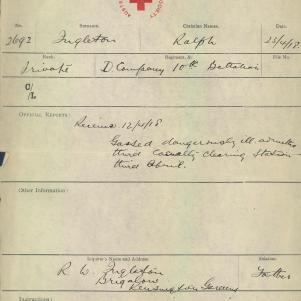 No. Surname. Christian Names. Date.
2692 Ingleton Ralph 25/4/18
Rank. Regiment, &c. File No.
Private D Company 10th Battalion
O/L
OFFICIAL REPORTS:
Received 12/4/18.
Gassed dangerously ill admitted
third Casualty Clearing Station
third April.
Other Information:
Inquirer's Name and Address: Relation:
R. W. Ingleton Father
Brigalow
Kensington Gardens
Instructions: